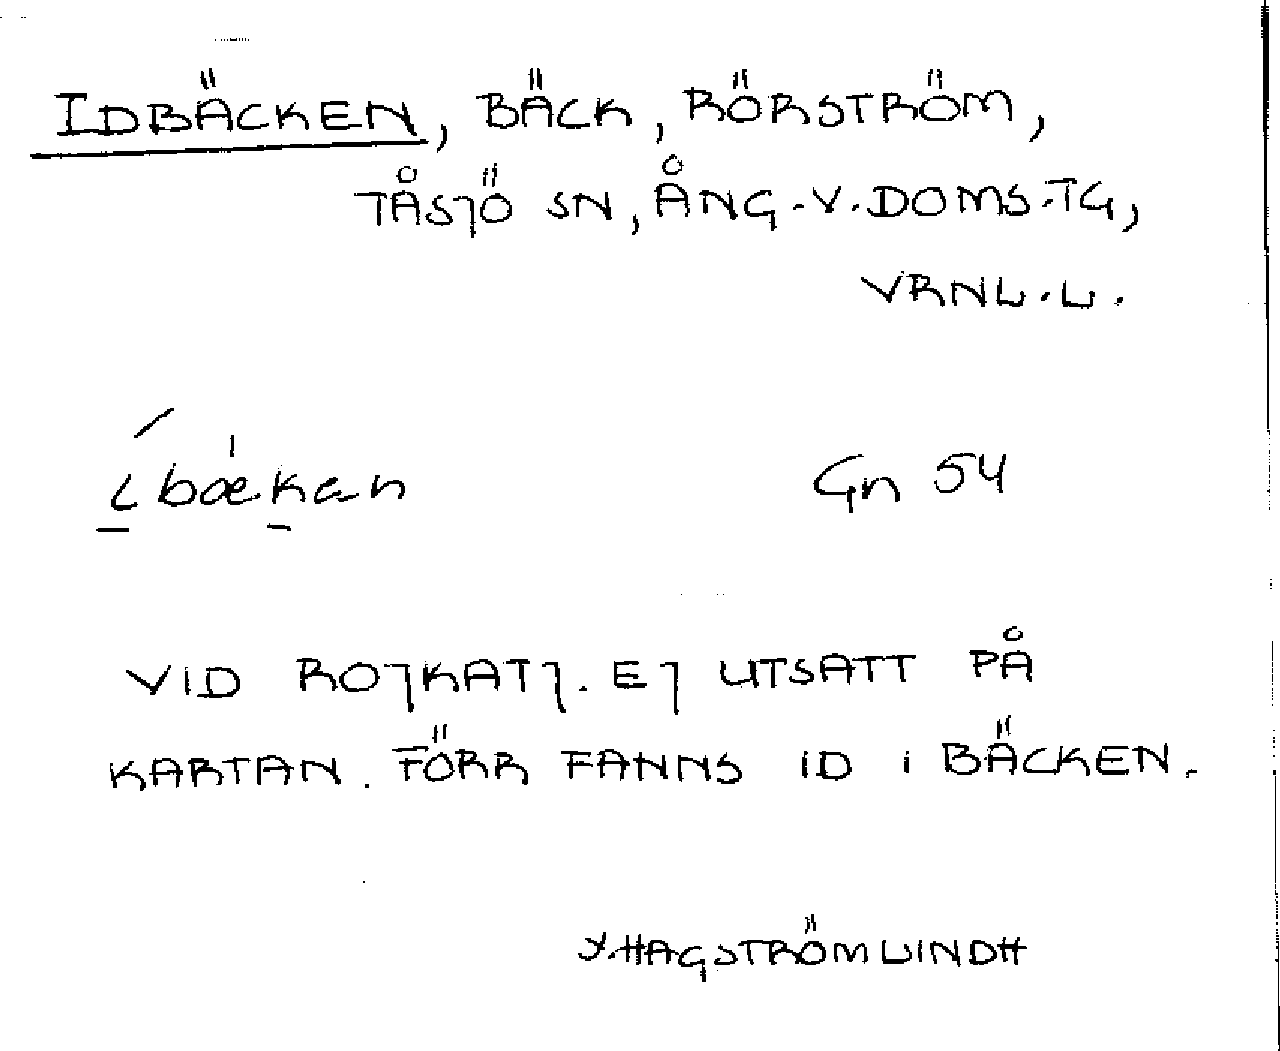 IDBÄCKEN, BÄCK, RÖRSTRÖM,
TÅSJÖ SN, ÅNG.V.DOMS.TG,
VRNL.L.
íbækan Gn 54
VID ROJKATJ. EJ UTSATT PÅ
KARTAN. FÖRR FANNS ID i BÄCKEN.
Y.HAGSTRÖM LINDH